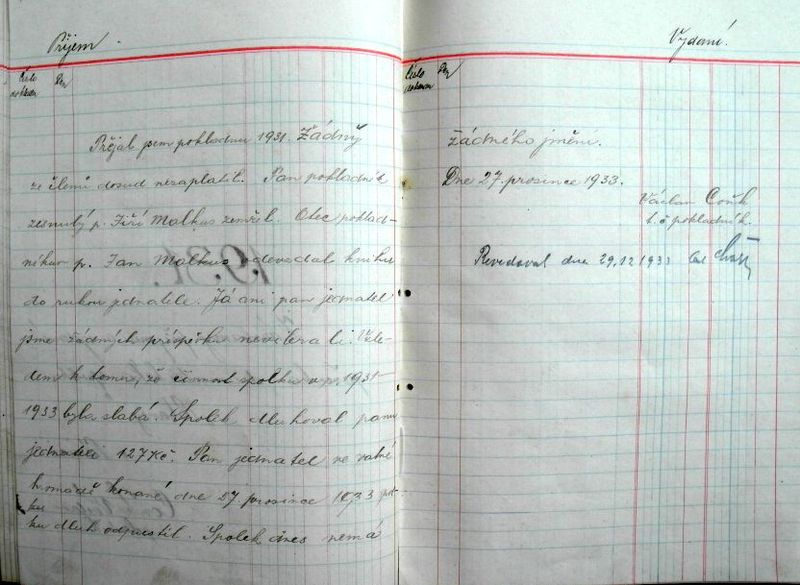 Příjem.
Číslo
dokladu
Den
Přijal jsem pokladnu 1931. Žádný
ze členů dosud nezaplatil. Pan pokladník
zesnulý p. Jiří Malkus zemřel. Otec poklad-
níkův p. Jan Malkus odevzdal knihu
do rukou jednatele. Já ani pan jednatel
jsme žádných příspěvků nevibrali. Vzle-
dem k tomu, že činnost spolku v r. 1931-
1933 byla slabá. Spolek dluhoval panu
jednateli 127 Kč. Pan jednatel ve valné
hromadě konané dne 27. prosince 1933 spol-
ku dluh odpustil. Spolek dnes nemá
Vydání.
Číslo
dokladu
Den
žádného jmění.
Dne 27. prosince 1933.
Václav
t. č. pokladník.
Revidoval dne 29.12 1933